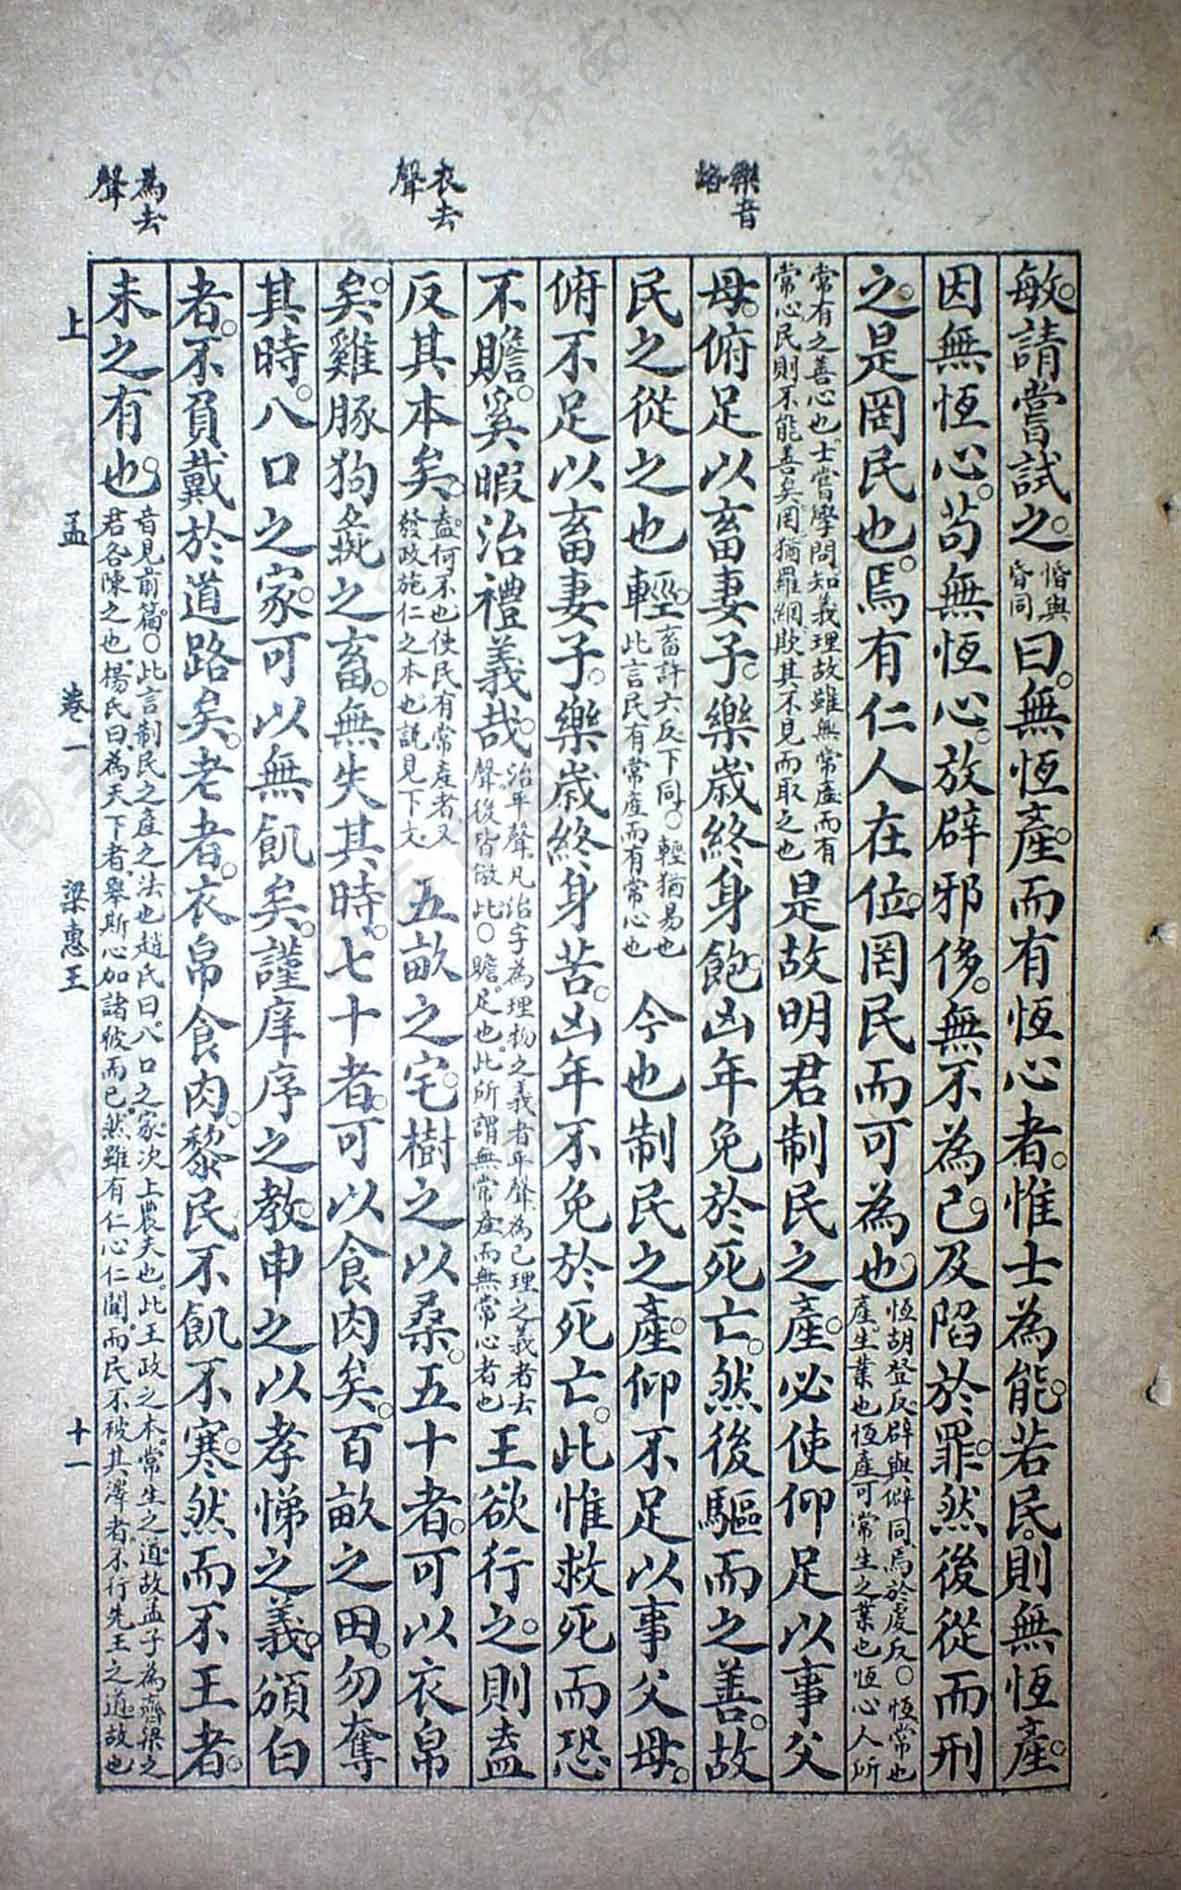 樂音
洛
衣去
聲
為去
聲
敏。請嘗試之。惛與昏同曰。無恆產。而有恆心者。惟士為能。若民。則無恆產。
因無恆心。苟無恆心。放辟邪侈。無不為已。及陷於罪。然後從而刑
之。是罔民也。焉有仁人在位。罔民而可為也。恆胡登反。辟與僻同。焉於虔反。○恆常也產。生業也恆產可常生之業也恆心人所
常有之善心也。士嘗學問知義理故雖無常產而有常心民則不能善矣。罔猶羅網。欺其不見而取之也是故明君制民之產。必使仰足以事父
母。俯足以畜妻子。樂歲終身飽。凶年免於死亡。然後驅而之善。故
民之從之也輕。畜許六反下同。○輕猶易也此言民有常產而有常心也 今也制民之產。仰不足以事父母。
俯不足以畜妻子。樂歲終身苦。凶年不免於死亡。此惟救死而恐
不贍。奚暇治禮義哉。治平聲。凡治字為理物之義者平聲為已理之義者去聲。後皆倣此。○贍足也。此所謂無常產而無常心者也王欲行之。則盍
反其本矣。盍。何不也使民有常產者又發政施仁之本也說見下文。 五畝之宅。樹之以桑。五十者。可以衣帛
矣。雞豚狗彘之畜。無失其時。七十者。可以食肉矣。百畝之田。勿奪
其時。八口之家。可以無飢矣。謹庠序之教。申之以孝悌之義。頒白
者。不負戴於道路矣。老者。衣帛食肉。黎民不飢不寒。然而不王者。
未之有也。音見前篇。○此言制民之產之法也趙氏曰。八口之家次上農夫也。此王政之本。常生之道。故孟子為齊梁之君各陳之也。楊氏曰。為天下者。舉斯心加諸彼而已。然雖有仁心仁聞。而民不被其澤者。不行先王之道故也
上 孟 卷一 梁惠王 十一